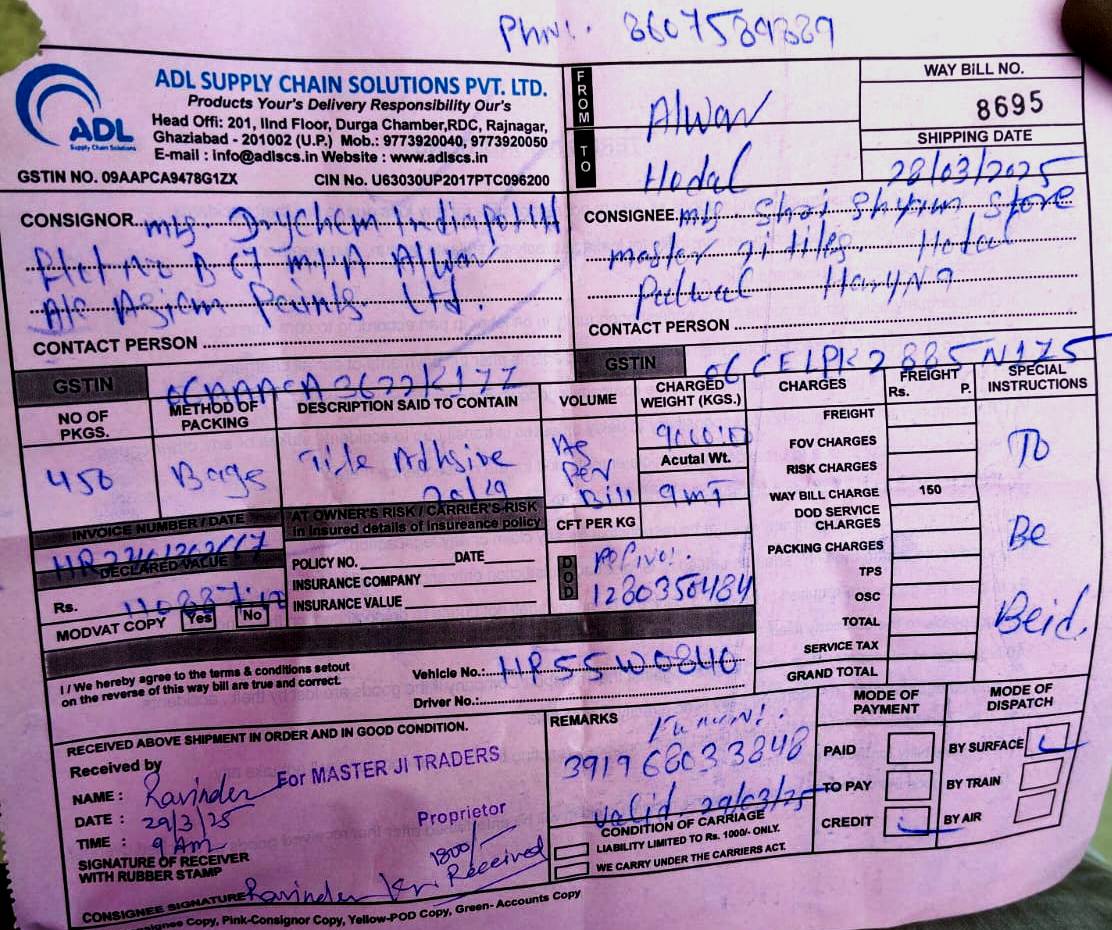 Phn:. 8607589889
ADL SUPPLY CHAIN SOLUTIONS PVT. LTD.
Products Your's Delivery Responsibility Our's
Head Offi: 201, IInd Floor, Durga Chamber,RDC, Rajnagar,
Ghaziabad - 201002 (U.P.) Mob.: 9773920040, 9773920050
E-mail : info@adlscs.in Website : www.adlscs.in
ADL
Supply Chain Solutions
GSTIN NO. 09AAPCA9478G1ZX CIN No. U63030UP2017PTC096200
FROM Alwar
TO Hodal
WAY BILL NO.
8695
SHIPPING DATE
28/03/2025
CONSIGNOR M/s. Drychem India Pvt Ltd
Plot no B 67 MIA Alwar
A/c Asian Paints Ltd.
CONTACT PERSON
CONSIGNEE M/s Shri Shyam Store
master ji tiles. Hodal
Palwal
CONTACT PERSON
GSTIN
GSTIN 06CELPK2885N1Z5
NO OF PKGS. METHOD OF PACKING DESCRIPTION SAID TO CONTAIN VOLUME CHARGED WEIGHT (KGS.) CHARGES FREIGHT Rs. P. SPECIAL INSTRUCTIONS
450 Bags Tile Adhsive 20/kg As Per Bill 9000:00
Acutal Wt.
9MT
CFT PER KG
FREIGHT
FOV CHARGES
RISK CHARGES
WAY BILL CHARGE 150
DOD SERVICE CHARGES
PACKING CHARGES
TPS
OSC
TOTAL
SERVICE TAX
GRAND TOTAL
To
Be
Beid.
INVOICE NUMBER / DATE
DECLARED VALUE
Rs.
MODVAT COPY Yes No
AT OWNER'S RISK / CARRIER'S RISK
in Insured details of insureance policy
POLICY NO. DATE
INSURANCE COMPANY
INSURANCE VALUE
DOD
1280350484
I / We hereby agree to the terms & conditions setout
on the reverse of this way bill are true and correct.
Vehicle No.: HR55W0840
Driver No.:
RECEIVED ABOVE SHIPMENT IN ORDER AND IN GOOD CONDITION.
Received by
NAME : Ravinder
DATE : 29/3/25
TIME : 9 Am
SIGNATURE OF RECEIVER
WITH RUBBER STAMP
For MASTER JI TRADERS
Proprietor
1800/-
Received
CONSIGNEE SIGNATURE Ravinder Kr.
REMARKS
391968033848
valid 29/03/25
CONDITION OF CARRIAGE
LIABILITY LIMITED TO Rs. 1000/- ONLY.
WE CARRY UNDER THE CARRIERS ACT.
MODE OF PAYMENT
PAID
TO PAY
CREDIT
MODE OF DISPATCH
BY SURFACE
BY TRAIN
BY AIR
Copy, Pink-Consignor Copy, Yellow-POD Copy, Green- Accounts Copy